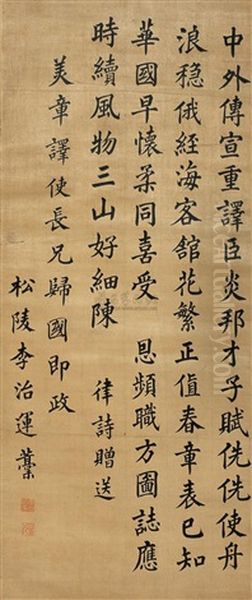 中外傳宣重譯臣炎邦才子賦侁侁使舟
浪穩俄經海客舘花繁正值春章表已知
華國早懷柔同喜受　恩頻職方圖誌應
時續風物三山好細陳　律詩贈送
美章譯使長兄歸國即政
松陵李治運藳